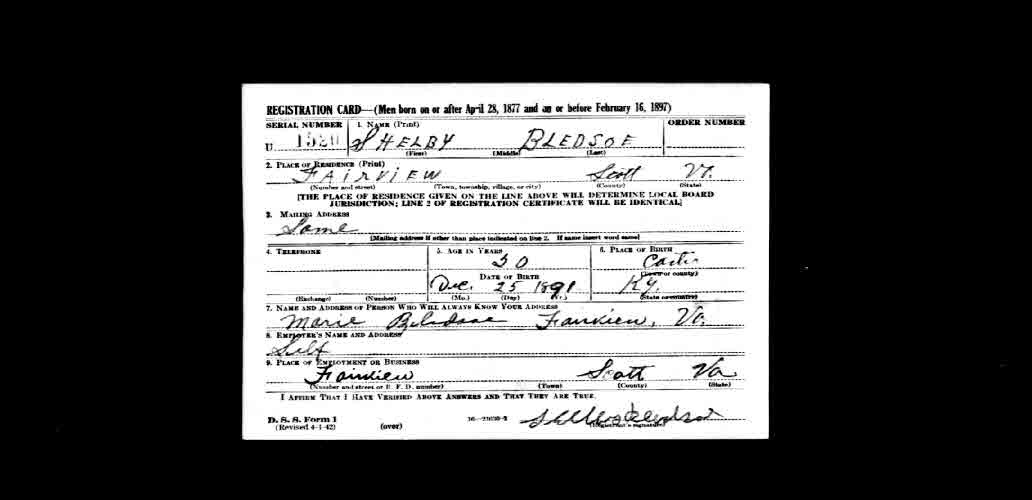 REGISTRATION CARD—(Men born on or after April 28, 1877 and on or before February 16, 1897)
SERIAL NUMBER 1. NAME (Print) ORDER NUMBER
U 1520 SHELBY BLEDSOE
(First) (Middle) (Last)
2. PLACE OF RESIDENCE (Print)
FAIRVIEW Scott Va.
(Number and street) (Town, township, village, or city) (County) (State)
[THE PLACE OF RESIDENCE GIVEN ON THE LINE ABOVE WILL DETERMINE LOCAL BOARD
JURISDICTION; LINE 2 OF REGISTRATION CERTIFICATE WILL BE IDENTICAL]
3. MAILING ADDRESS
Same
[Mailing address if other than place indicated on line 2. If same insert word same]
4. TELEPHONE 5. AGE IN YEARS 6. PLACE OF BIRTH
50 Carter
DATE OF BIRTH (Town or county)
Dec. 25 1891 Ky.
(Exchange) (Number) (Mo.) (Day) (Yr.) (State or country)
7. NAME AND ADDRESS OF PERSON WHO WILL ALWAYS KNOW YOUR ADDRESS
Marie Bledsoe Fairview, Va.
8. EMPLOYER'S NAME AND ADDRESS
Self
9. PLACE OF EMPLOYMENT OR BUSINESS
Fairview Scott Va
(Number and street or R. F. D. number) (Town) (County) (State)
I AFFIRM THAT I HAVE VERIFIED ABOVE ANSWERS AND THAT THEY ARE TRUE.
D. S. S. Form 1
(Revised 4-1-42) (over) Shelby Bledsoe
(Registrant's signature)